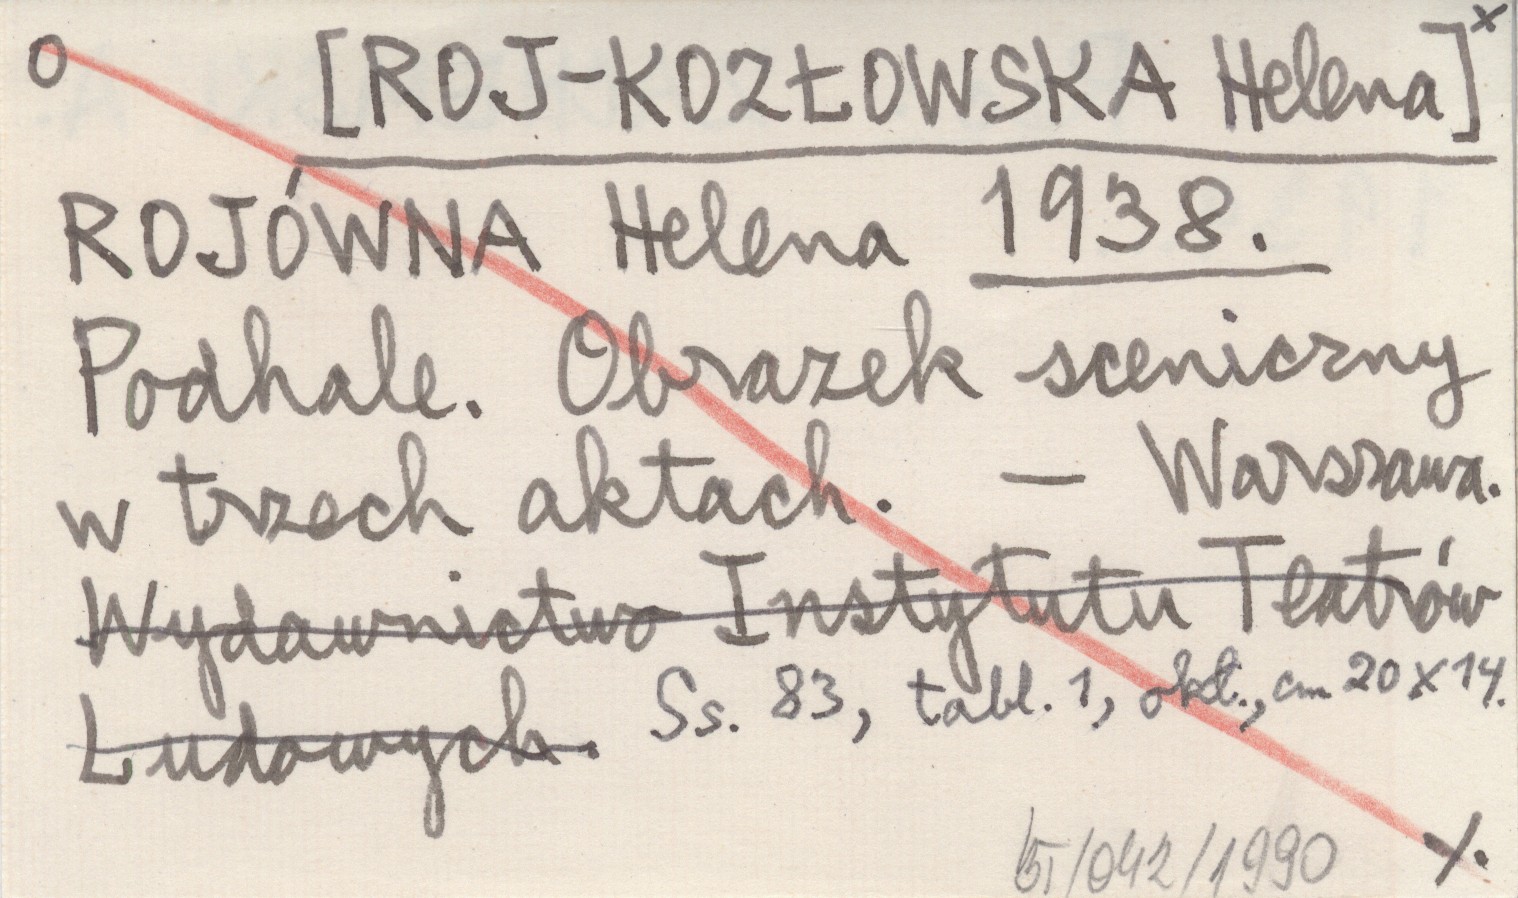 O [ROJ-KOZŁOWSKA Helena]x
ROJÓWNA Helena 1938.
Podhale. Obrazek sceniczny
w trzech aktach. — Warszawa.
Wydawnictwo Instytutu Teatrów
Ludowych. Ss. 83, tabl. 1, okł., cm 20 x 14.
/042/1990 ./.